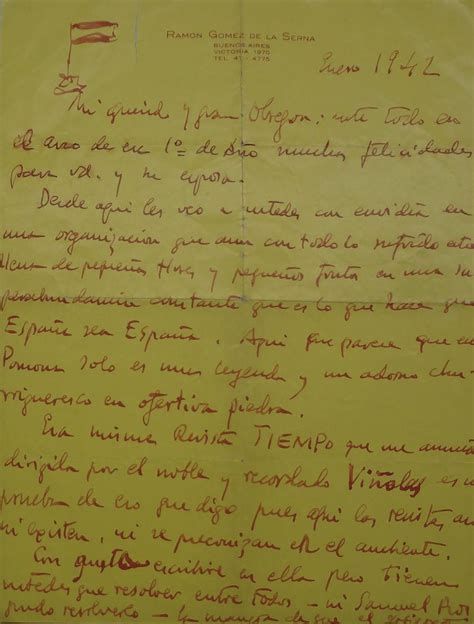 RAMON GOMEZ DE LA SERNA
BUENOS AIRES
VICTORIA 1970
TEL. 47 - 4775
Enero 1942
Mi querido y gran Obregon: ante todo en
el arco de ese 1º de Año muchas felicidades
para vd. y su esposa.
Desde aqui les veo a ustedes con envidia en
una organizacion que aun con todo lo sufrido esta
llena de pequeñas flores y pequeños frutos en una su
perabundancia constante que es lo que hace que
España sea España. Aqui que parece que
Pomona solo es una leyenda y un adorno chu
rrigueresco en ofertiva piedra.
Esa misma Revista TIEMPO que me anuncia
dirigida por el noble y recordado Viñolas es
prueba de eso que digo pues aqui las revistas
ni existen, ni se preconizan en el ambiente.
Con gusto escribire en ella pero tienen
ustedes que resolver entre todos - ni Samuel Ros
pudo resolverlo - la manera de que el